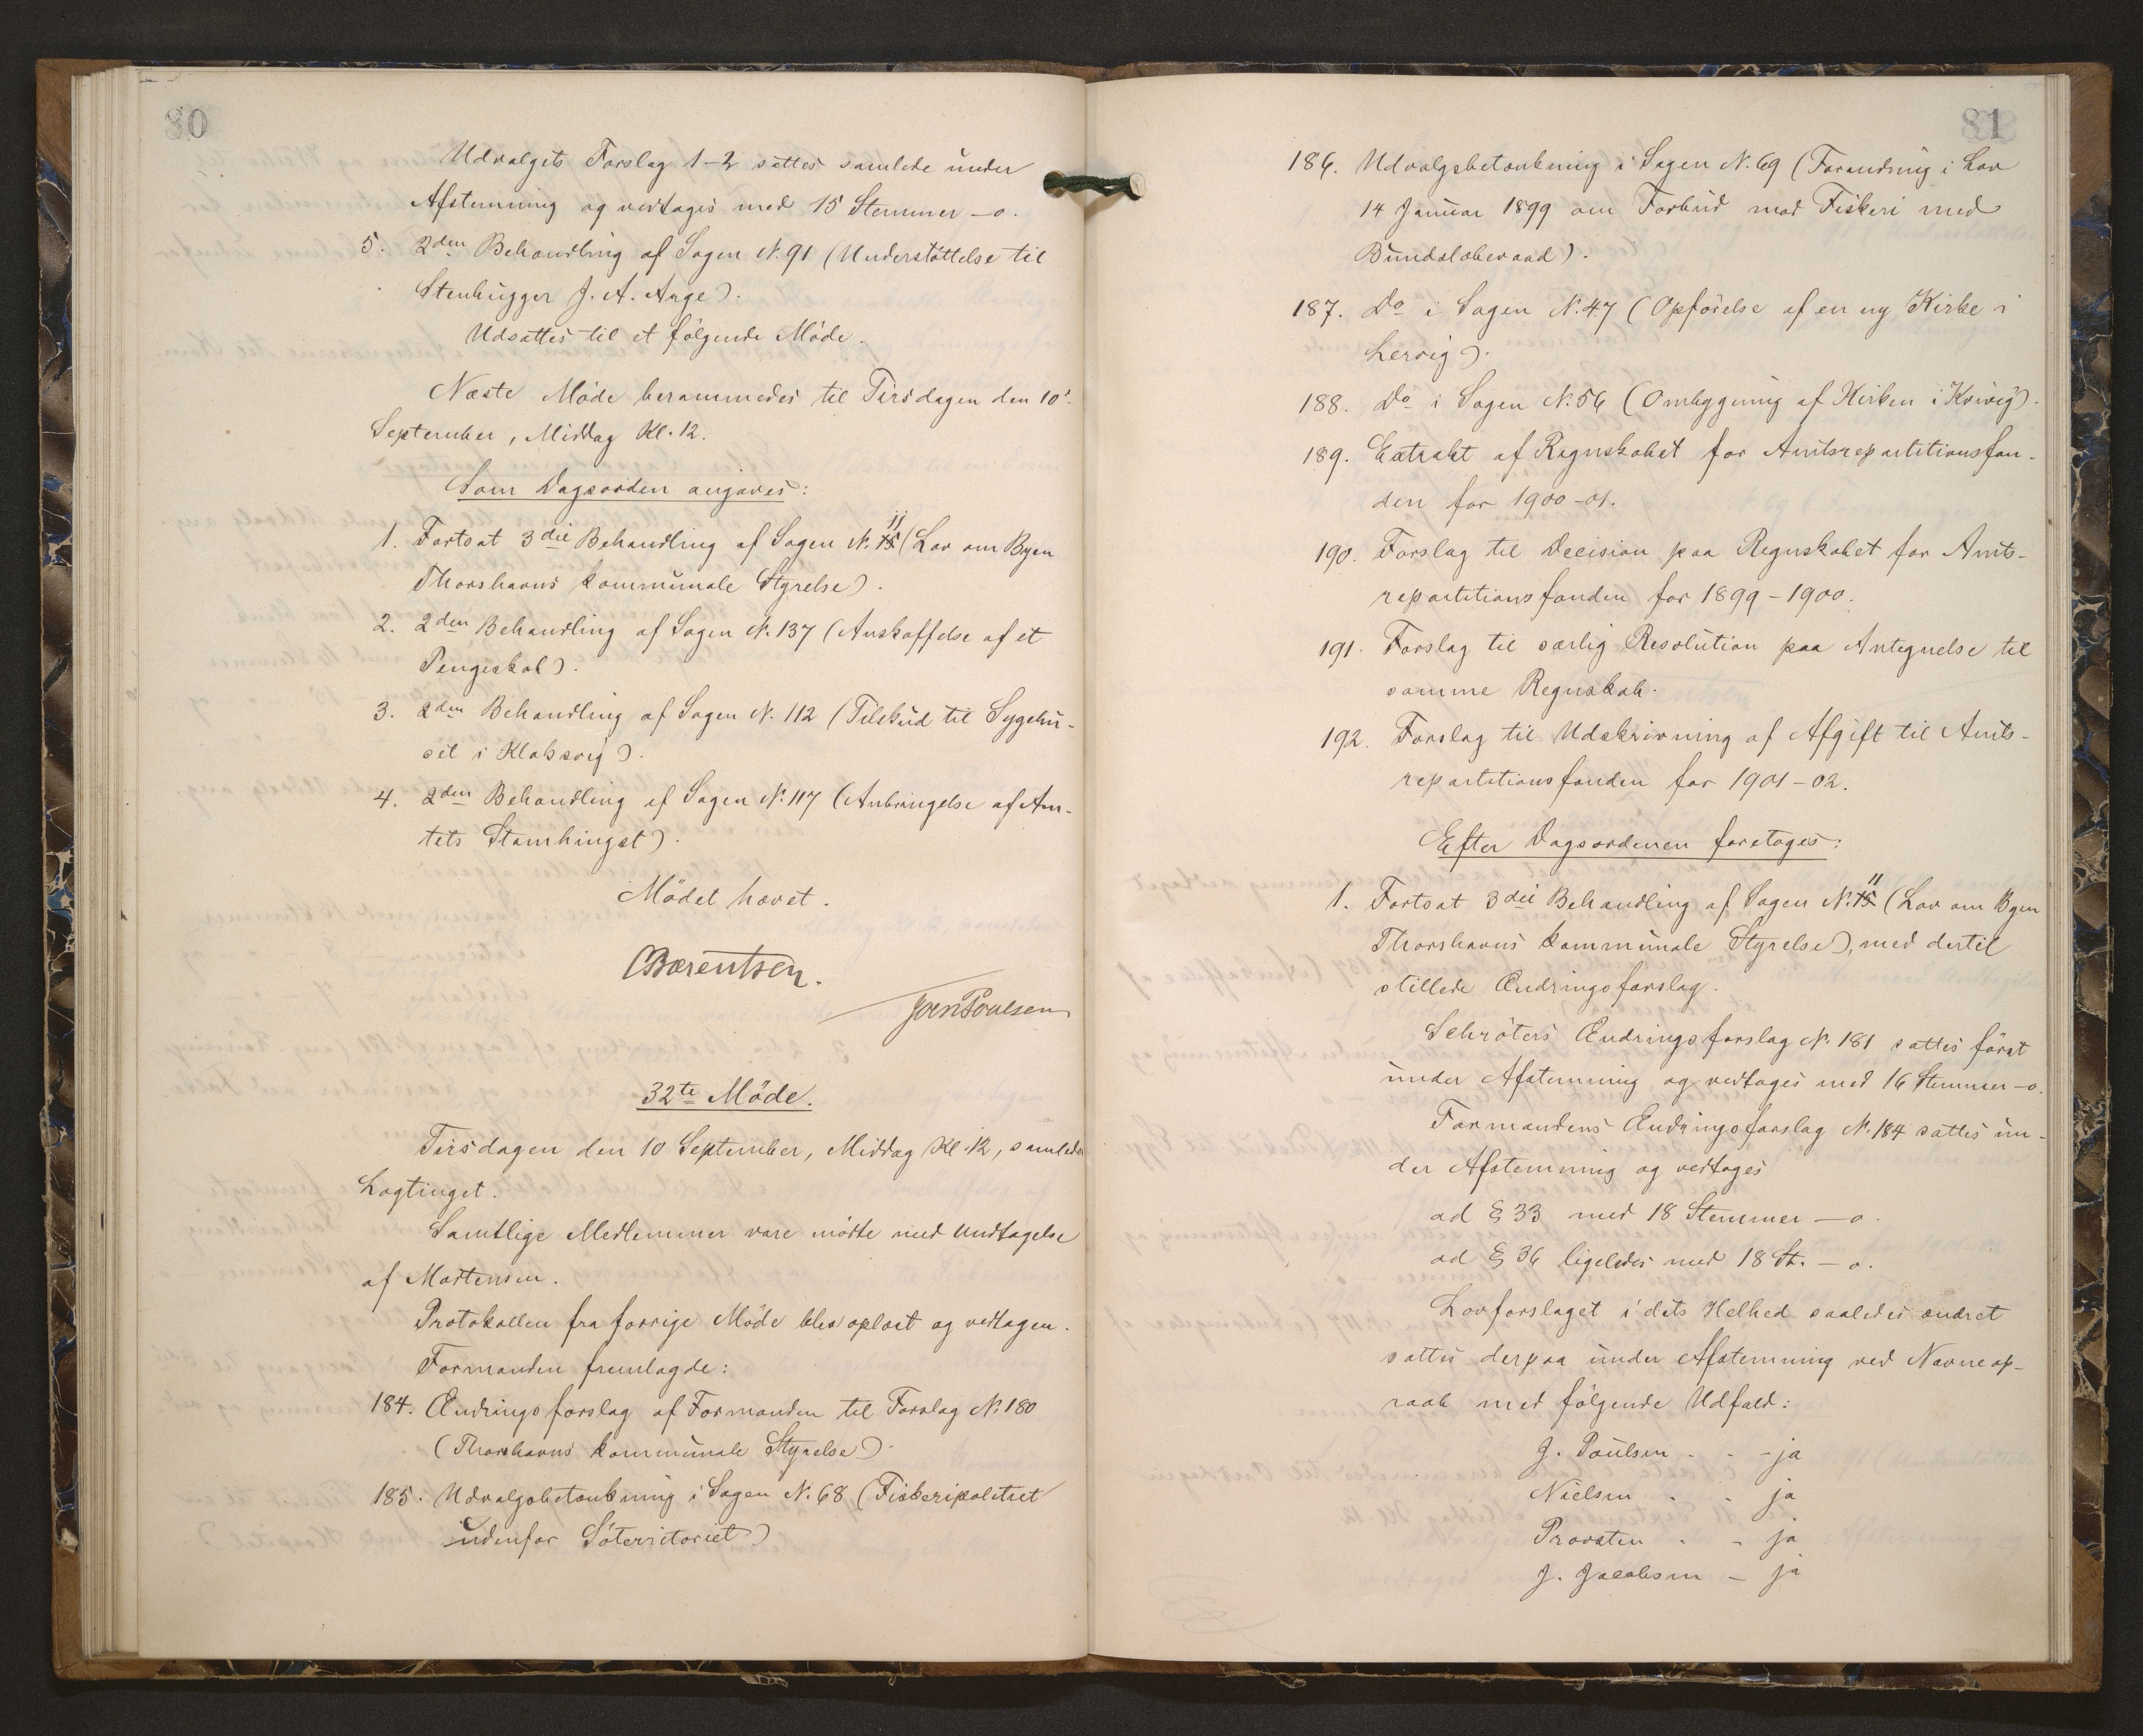 80
Udvalgets Forslag 1-2 sattes samlede under
Afstemning og vedtoges med 15 Stemmer -o.
5. 2den Behandling af Sagen N. 91 (Understøttelse til
Stenhugger J. A. Arge).
Udsattes til et følgende Møde.
Næste Møde berammedes til Tirsdagen den 10'
September, Middag Kl. 12.
Som Dagsorden angaves:
1. Fortsat 3die Behandling af Sagen N. 11 (Lov om Byen
Thorshavns kommunale Styrelse).
2. 2den Behandling af Sagen N. 137 (Anskaffelse af et
Pengeskab).
3. 2den Behandling af Sagen N. 112 (Tilskud til Sygehu-
set i Klaksvig).
4. 2den Behandling af Sagen N. 117 (Anbringelse af Am-
tets Stamhingst).
Mödet hævet.
CBærentsen.
Joen Poulsen
32te Møde.
Tirsdagen den 10 September, Middag Kl. 12, samledes
Lagtinget.
Samtlige Medlemmer vare mødte med Undtagelse
af Mortensen.
Protokollen fra forrige Møde blev oplæst og vedtagen.
Formanden fremlagde:
184. Ændringsforslag af Formanden til Forslag N. 180
(Thorshavns kommunale Styrelse).
185. Udvalgsbetænkning i Sagen N. 68 (Fiskeripolitiet
udenfor Søterritoriet)
81
186. Udvalgsbetænkning i Sagen N. 69 (Forandring i Lov
14 Januar 1899 om Forbud mod Fiskeri med
Bundslæbevaad).
187. Do i Sagen N. 47 (Opførelse af en ny Kirke i
Lervig).
188. Do i Sagen N. 56 (Ombygning af Kirken i Kvivig).
189. Extrakt af Regnskabet for Amtsrepartitionsfon-
den for 1900-01.
190. Forslag til Decision paa Regnskabet for Amts-
repartitionsfonden for 1899-1900.
191. Forslag til særlig Resolution paa Antegnelse til
samme Regnskab.
192. Forslag til Udskrivning af Afgift til Amts-
repartitionsfonden for 1901-02.
Efter Dagsordenen foretoges:
1. Fortsat 3die Behandling af Sagen N. 11 (Lov om Byen
Thorshavns kommunale Styrelse), med dertil
stillede Ændringsforslag.
Schrøters Ændringsforslag N. 181 sattes først
under Afstemning og vedtoges med 16 Stemmer -o.
Formandens Ændringsforslag N. 184 sattes un-
der Afstemning og vedtoges
ad § 33 med 18 Stemmer - o.
ad § 36 ligeledes med 18 St. - o.
Lovforslaget i dets Helhed saaledes ændret
sattes derpaa under Afstemning ved Navneop-
raab med følgende Udfald:
J. Poulsen - - - ja
Nielsen - - ja
Provsten - - ja
J. Jacobsen - ja